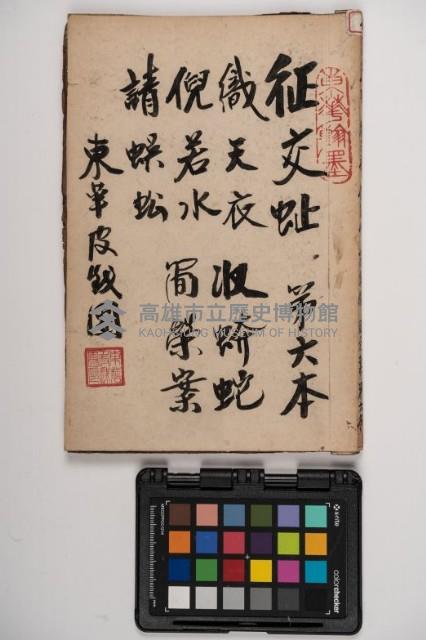 征交趾 第六本
織天衣 收螃蛇
倪若水 閙榮案
請蜈蚣
東華皮戲團
高雄市立歷史博物館
KAOHSIUNG MUSEUM OF HISTORY
x-rite
colorchecker